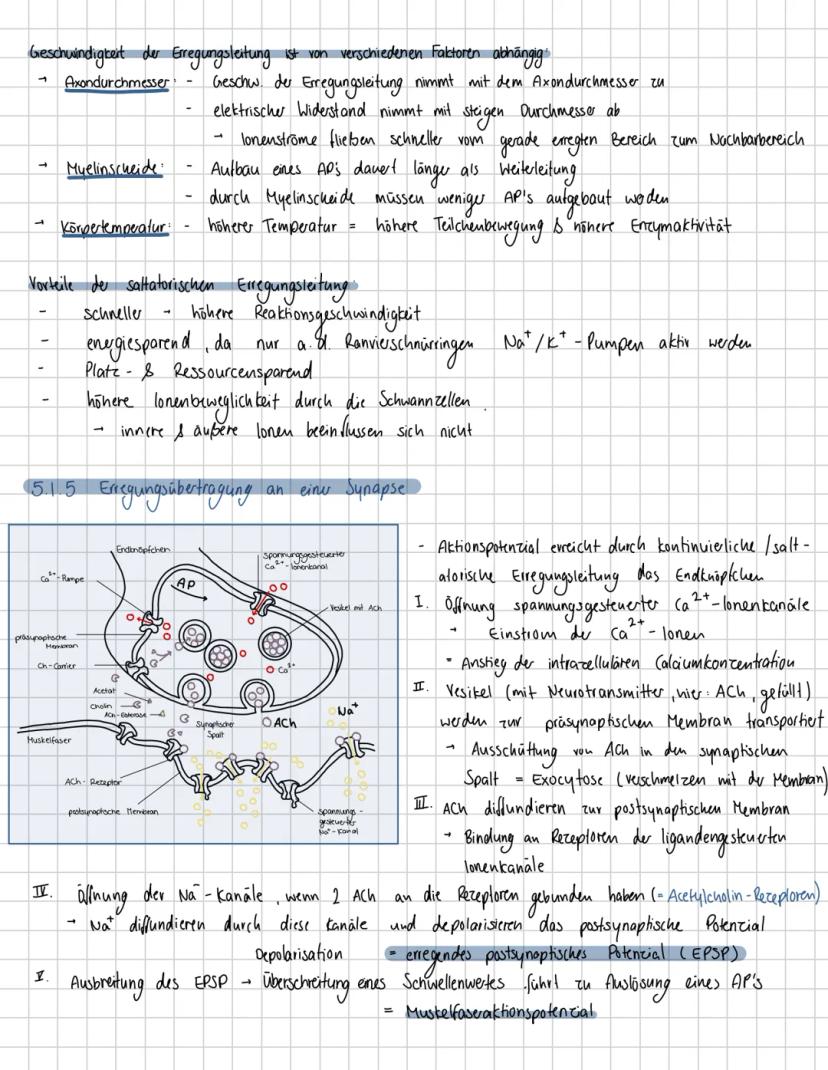 Geschwindigkeit der Erregungsleitung ist von verschiedenen Faktoren abhängig:
→ Axondurchmesser: - Geschw. der Erregungsleitung nimmt mit dem Axondurchmesser zu
- elektrischer Widerstand nimmt mit steigen Durchmesser ab
→ Ionenströme fließen schneller vom gerade erregten Bereich zum Nachbarbereich
→ Myelinscheide: - Aufbau eines AP's dauert länger als Weiterleitung
- durch Myelinscheide müssen weniger AP's aufgebaut werden
→ Körpertemperatur: - höherer Temperatur = höhere Teilchenbewegung & höhere Enzymaktivität
Vorteile der saltatorischen Erregungsleitung:
- schneller → höhere Reaktionsgeschwindigkeit
- energiesparend, da nur a.d. Ranvierschnürringen Na⁺/K⁺-Pumpen aktiv werden
- Platz- & Ressourcensparend
- höhere Ionenbeweglichkeit durch die Schwannzellen
→ innere & äußere Ionen beeinflussen sich nicht
5.1.5 Erregungsübertragung an einer Synapse
Endknöpfchen
Spannungsgesteuerter
Ca²⁺-Ionenkanal
Ca²⁺-Pumpe
AP
Vesikel mit Ach
präsynaptische
Membran
Ch-Carrier
Ca²⁺
Acetat
Cholin
Ach-Esterase
Synaptischer
Spalt
ACh
Na⁺
Muskelfaser
ACh-Rezeptor
postsynaptische Membran
spannungs-
gesteuerter
Na⁺-Kanal
- Aktionspotenzial erreicht durch kontinuierliche /salt-
atorische Erregungsleitung das Endknöpfchen
I. Öffnung spannungsgesteuerter Ca²⁺-Ionenkanäle
→ Einstrom der Ca²⁺-Ionen
= Anstieg der intrazellulären Calciumkonzentration
II. Vesikel (mit Neurotransmitter, hier: ACh, gefüllt)
werden zur präsynaptischen Membran transportiert
→ Ausschüttung von ACh in den synaptischen
Spalt = Exocytose (verschmelzen mit der Membran)
III. ACh diffundieren zur postsynaptischen Membran
→ Bindung an Rezeptoren der ligandengesteuerten
Ionenkanäle
IV. Öffnung der Na⁻-Kanäle, wenn 2 ACh an die Rezeptoren gebunden haben (= Acetylcholin-Rezeptoren)
→ Na⁺ diffundieren durch diese Kanäle und depolarisieren das postsynaptische Potenzial
Depolarisation = erregendes postsynaptisches Potenzial (EPSP)
V. Ausbreitung des EPSP → Überschreitung eines Schwellenwertes führt zu Auslösung eines AP's
= Muskelfaseraktionspotenzial